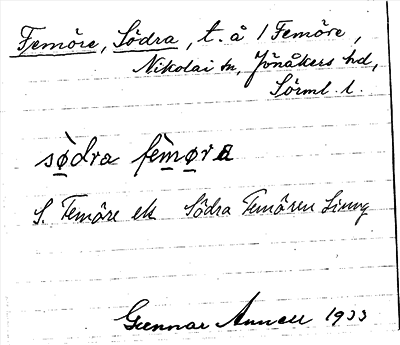 Femöre, Södra, t. å 1 Femöre,
Nikolai sn, Jönåkers hd,
Sörml. l.
sødra femøra
S. Femöre ek Södra Femören
Gunnar 1933